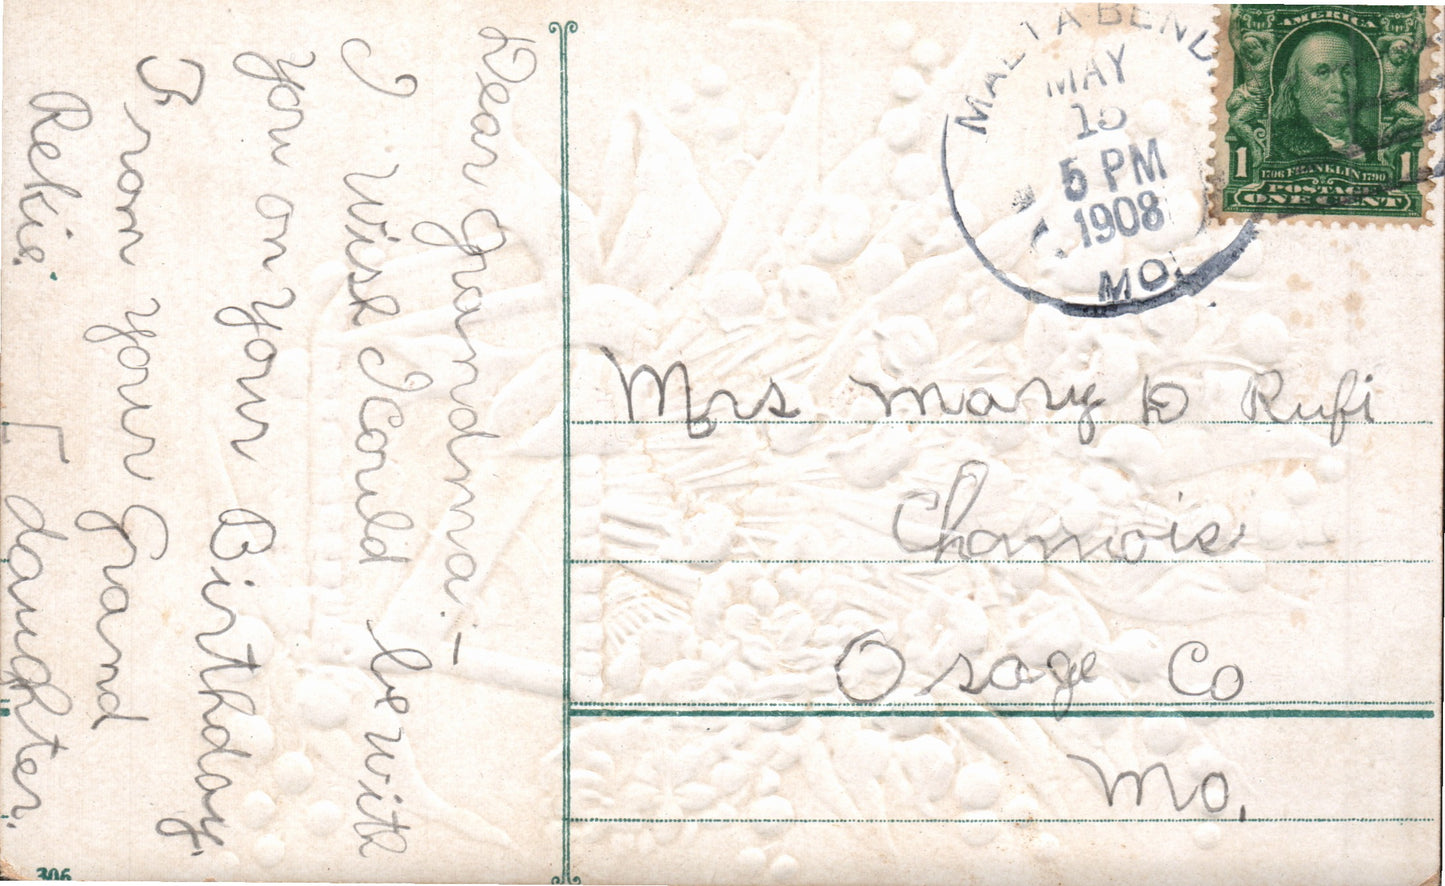 Dear Grandma. –
I Wish I Could be with
you on your Birthday.
From your Grand
daughter.
Rekie.
306
MALTA BEND
MAY
5 PM
1908
MO.
AMERICA
1 1706 FRANKLIN 1790 1
POSTAGE
ONE CENT
Mrs Mary D Rufi
Chamois
Osage Co
Mo.